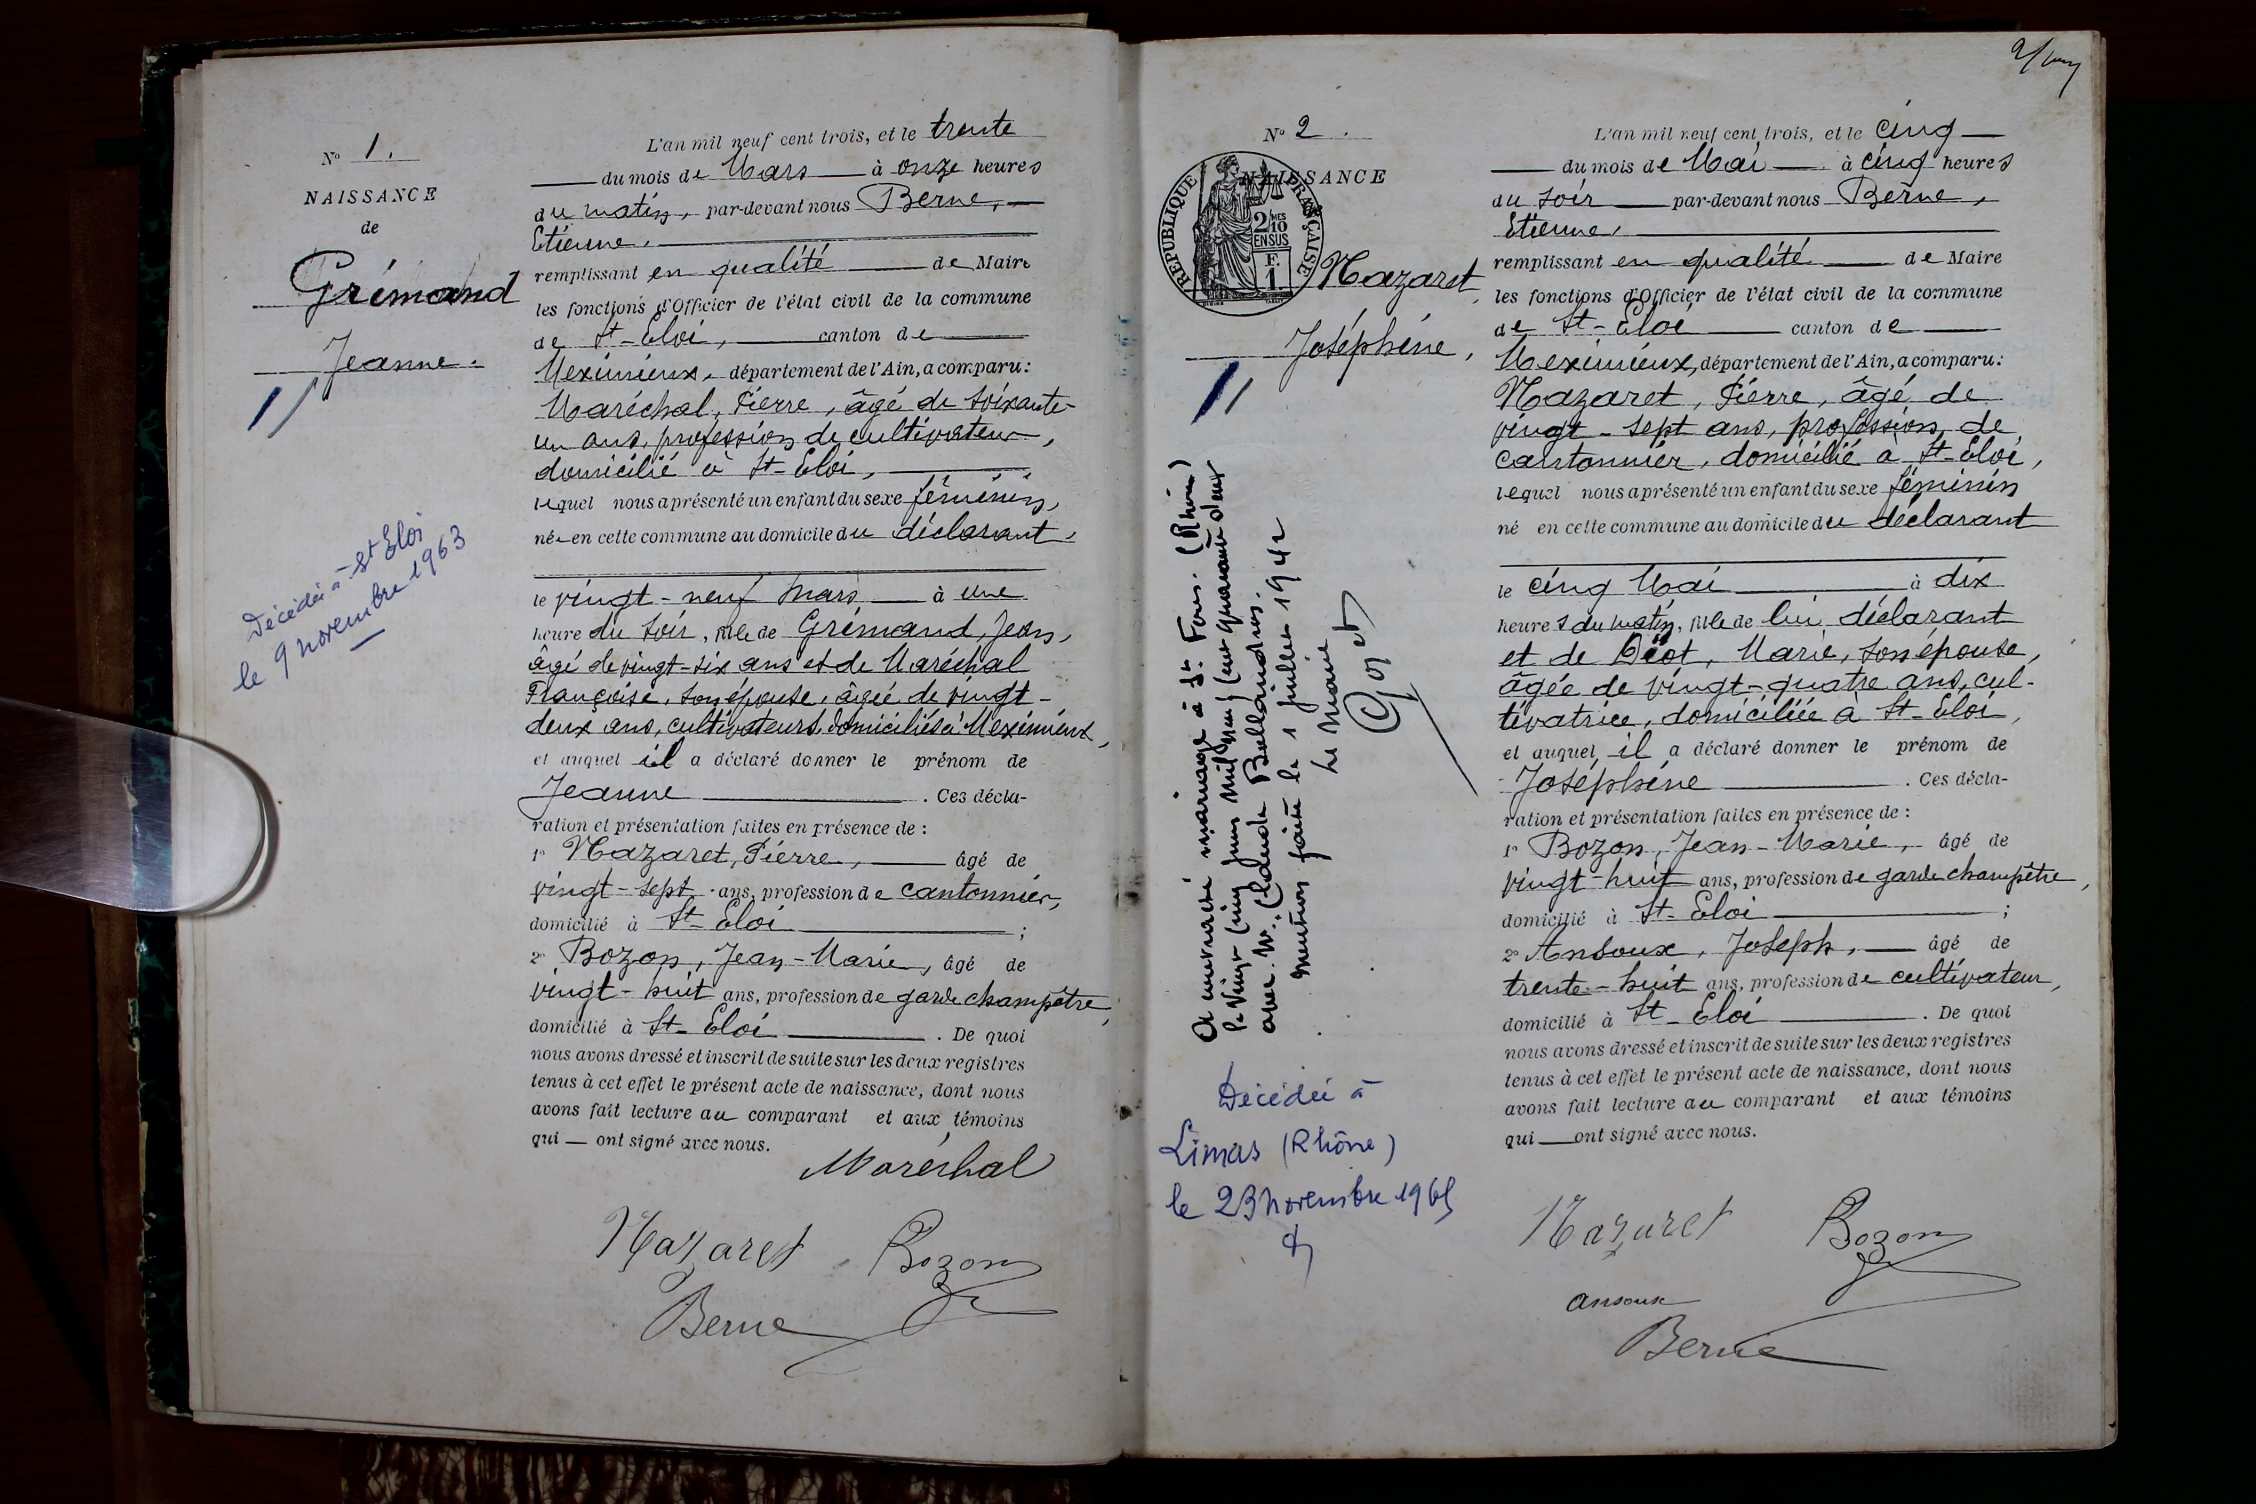 N° 1.
NAISSANCE
de
Grémand
Jeanne.
Décédée à St Eloi
le 9 novembre 1963
L'an mil neuf cent trois, et le trente
du mois de Mars à onze heures
du matin, par-devant nous Berne,
Etienne,
remplissant en qualité de Maire
les fonctions d'Officier de l'état civil de la commune
de St-Eloi, canton de
Meximieux, département de l'Ain, a comparu:
Maréchal, Pierre, âgé de soixante-
un ans, profession de cultivateur,
domicilié à St-Eloi,
lequel nous a présenté un enfant du sexe féminin,
née en cette commune au domicile du déclarant,
le vingt-neuf Mars à une
heure du soir, fille de Grémand, Jean,
âgé de vingt-six ans et de Maréchal
Françoise, son épouse, âgée de vingt-
deux ans, cultivateurs, domiciliés à Meximieux,
et auquel il a déclaré donner le prénom de
Jeanne . Ces décla-
ration et présentation faites en présence de :
1° Nazaret, Pierre, âgé de
vingt-sept ans, profession de cantonnier,
domicilié à St-Eloi ;
2° Bozon, Jean-Marie, âgé de
vingt-huit ans, profession de garde champêtre,
domicilié à St-Eloi . De quoi
nous avons dressé et inscrit de suite sur les deux registres
tenus à cet effet le présent acte de naissance, dont nous
avons fait lecture au comparant et aux témoins
qui ont signé avec nous.
Maréchal
Nazaret Bozon
Berne
N° 2.
NAISSANCE
REPUBLIQUE FRANÇAISE
2/10 MES
EN SUS
F.
1.
Nazaret,
Joséphine,
A contracté mariage à St. Fons. (Rhône)
le vingt cinq juin mil neuf cent quarante deux
avec Mr. Claude Ballandras.
mention faite le 1 juillet 1942
Le Maire
Goyet
Décédée à
Limas (Rhône)
le 23 novembre 1965
L'an mil neuf cent trois, et le cinq
du mois de Mai à cinq heures
du soir par-devant nous Berne,
Etienne,
remplissant en qualité de Maire
les fonctions d'Officier de l'état civil de la commune
de St-Eloi canton de
Meximieux, département de l'Ain, a comparu:
Nazaret, Pierre, âgé de
vingt-sept ans, profession de
cantonnier, domicilié à St-Eloi,
lequel nous a présenté un enfant du sexe féminin
né en cette commune au domicile du déclarant
le cinq Mai à dix
heures du matin, fille de lui déclarant
et de Déot, Marie, son épouse,
âgée de vingt-quatre ans, cul-
tivatrice, domiciliée à St-Eloi,
et auquel il a déclaré donner le prénom de
Joséphine . Ces décla-
ration et présentation faites en présence de :
1° Bozon, Jean-Marie, âgé de
vingt-huit ans, profession de garde champêtre,
domicilié à St-Eloi ;
2° Ansoux, Joseph, âgé de
trente-huit ans, profession de cultivateur,
domicilié à St-Eloi . De quoi
nous avons dressé et inscrit de suite sur les deux registres
tenus à cet effet le présent acte de naissance, dont nous
avons fait lecture au comparant et aux témoins
qui ont signé avec nous.
Nazaret Bozon
ansoux
Berne